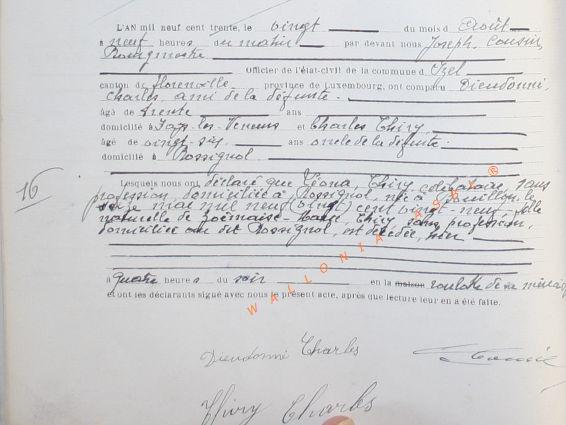 L'AN mil neuf cent trente, le vingt du mois d'Août
à neuf heures du matin par devant nous Joseph Cousin,
Bourgmestre
Officier de l'état-civil de la commune d'Izel
canton de florenville province de Luxembourg, ont comparu Dieudonné,
Charles, ami de la défunte.
âgé de trente ans
domicilié à et Charles Thiry
âgé de vingt-six ans oncle de la défunte.
domicilié à Rossignol
16
Lesquels nous ont déclaré que Léona, Thiry célibataire, sans
profession, domiciliée à Rossignol, née à le
mai mil neuf cent vingt-neuf, fille
naturelle de Thiry sans profession,
domiciliée au dit Rossignol, est décédée, hier
à quatre heures du soir en la maison roulotte de sa
et ont les déclarants signé avec nous le présent acte, après que lecture leur en a été faite.
WALLONIA ®
Dieudonné Charles
Thiry Charles